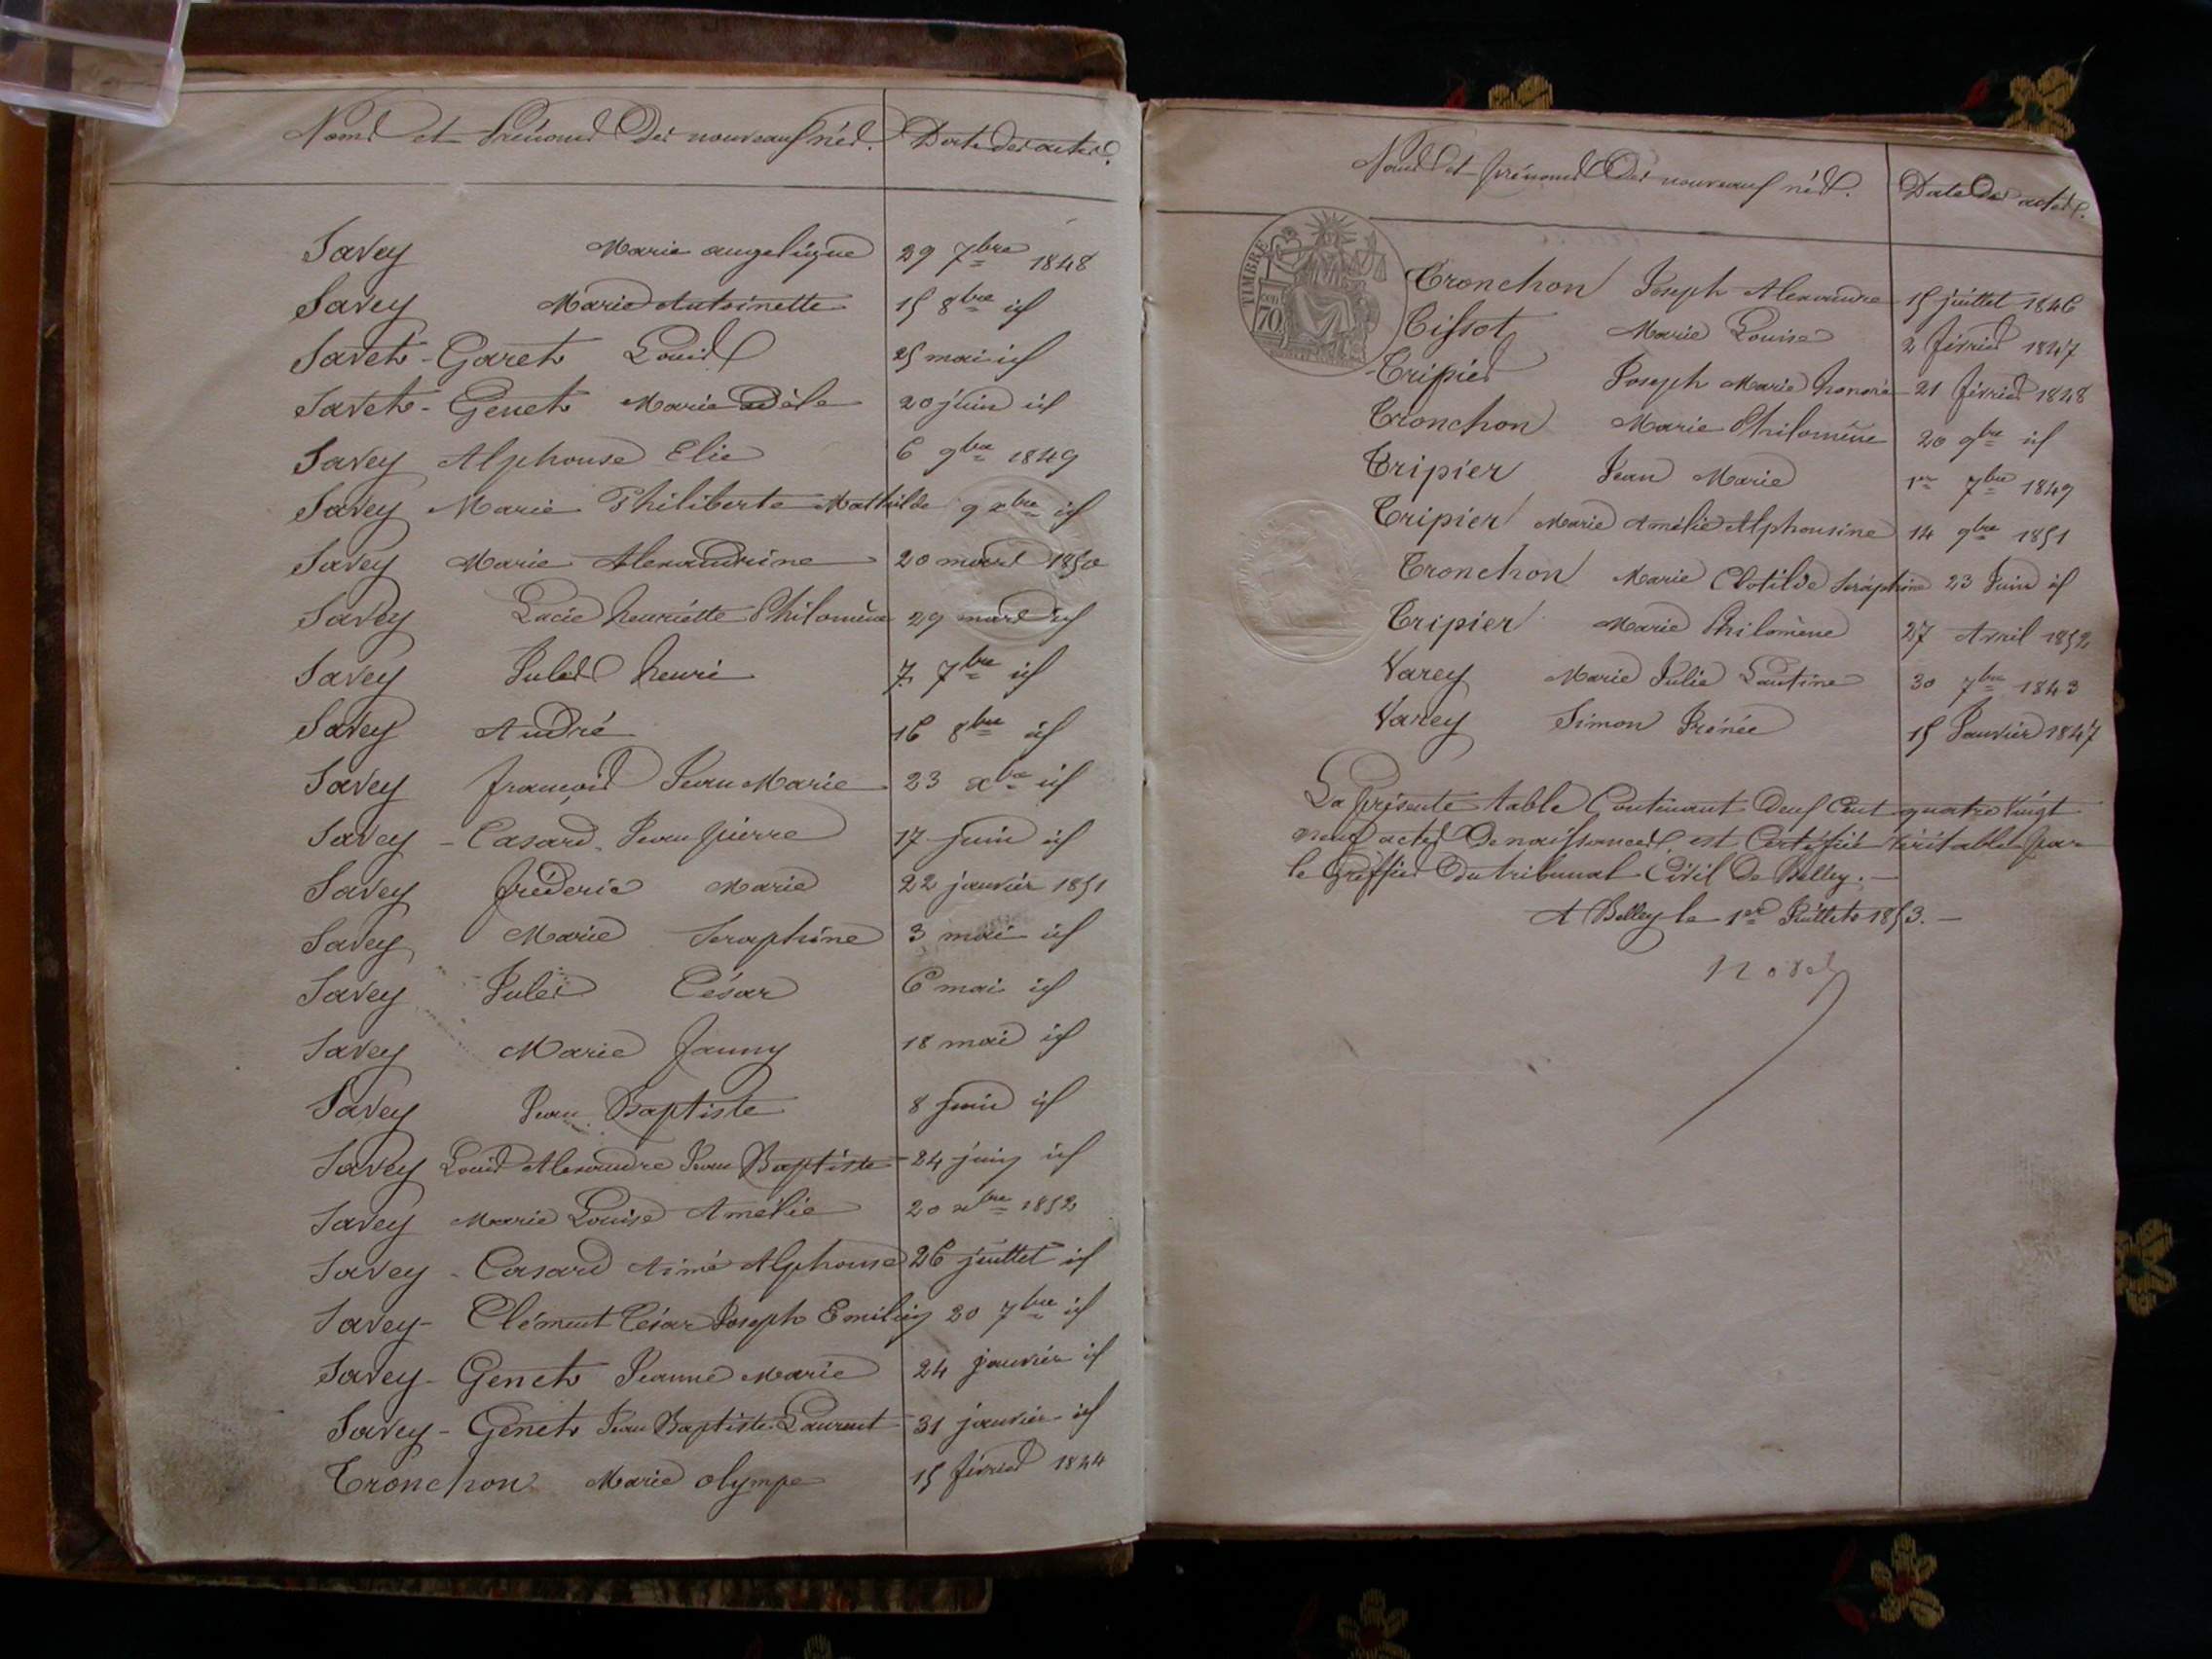 Noms et Prénoms Des nouveaux nés. Date des actes.
Savey Marie angelique 29 7bre 1848
Savey Marie Antoinette 15 8bre id
Savets-Garets Louis 25 mai id
Savets-Genets Marie adèle 20 juin id
Savey Alphonse Elie 6 9bre 1849
Savey Marie Philiberte Mathilde 9 xbre id
Savey Marie Alexandrine 20 mars 1850
Savey Lucie henriette Philomène 29 mars id
Savey Jules henri 7 7bre id
Savey André 16 8bre id
Savey françois Jean Marie 23 xbre id
Savey - Casard Jean pierre 17 juin id
Savey fréderic Marie 22 janvier 1851
Savey Marie Seraphine 3 mai id
Savey Jules César 6 mai id
Savey Marie fanny 18 mai id
Savey Jean Baptiste 8 juin id
Savey Louis Alexandre Jean Baptiste 24 juin id
Savey Marie Louise Amélie 20 xbre 1852
Savey - Casard Aimé Alphonse 26 juillet id
Savey - Clément César Joseph Emilien 20 7bre id
Savey - Genets Jeanne Marie 24 janvier id
Savey - Genets Jean Baptiste Laurent 31 janvier id
Tronchon Marie olympe 15 février 1844
Noms et prénoms Des nouveaux nés. Date Des actes.
TIMBRE
70
Tronchon Joseph Alexandre 15 juillet 1846
Tissot Marie Louise 2 février 1847
Tripier Joseph Marie honoré 21 février 1848
Tronchon Marie Philomène 20 9bre id
Tripier Jean Marie 1er 7bre 1849
Tripier Marie Amélie Alphonsine 14 9bre 1851
Tronchon Marie Clotilde Séraphine 23 Juin id
Tripier Marie Philomène 27 Avril 1852
Varey Marie Julie Lautine 30 7bre 1843
Varey Simon Irénée 15 Janvier 1847
La présente table Contenant Deux Cent quatre Vingt
neuf actes De naissances, est Certifiée véritable par
le Greffier Du tribunal Civil De Belley. -
A Belley le 1er Juillet 1853. -